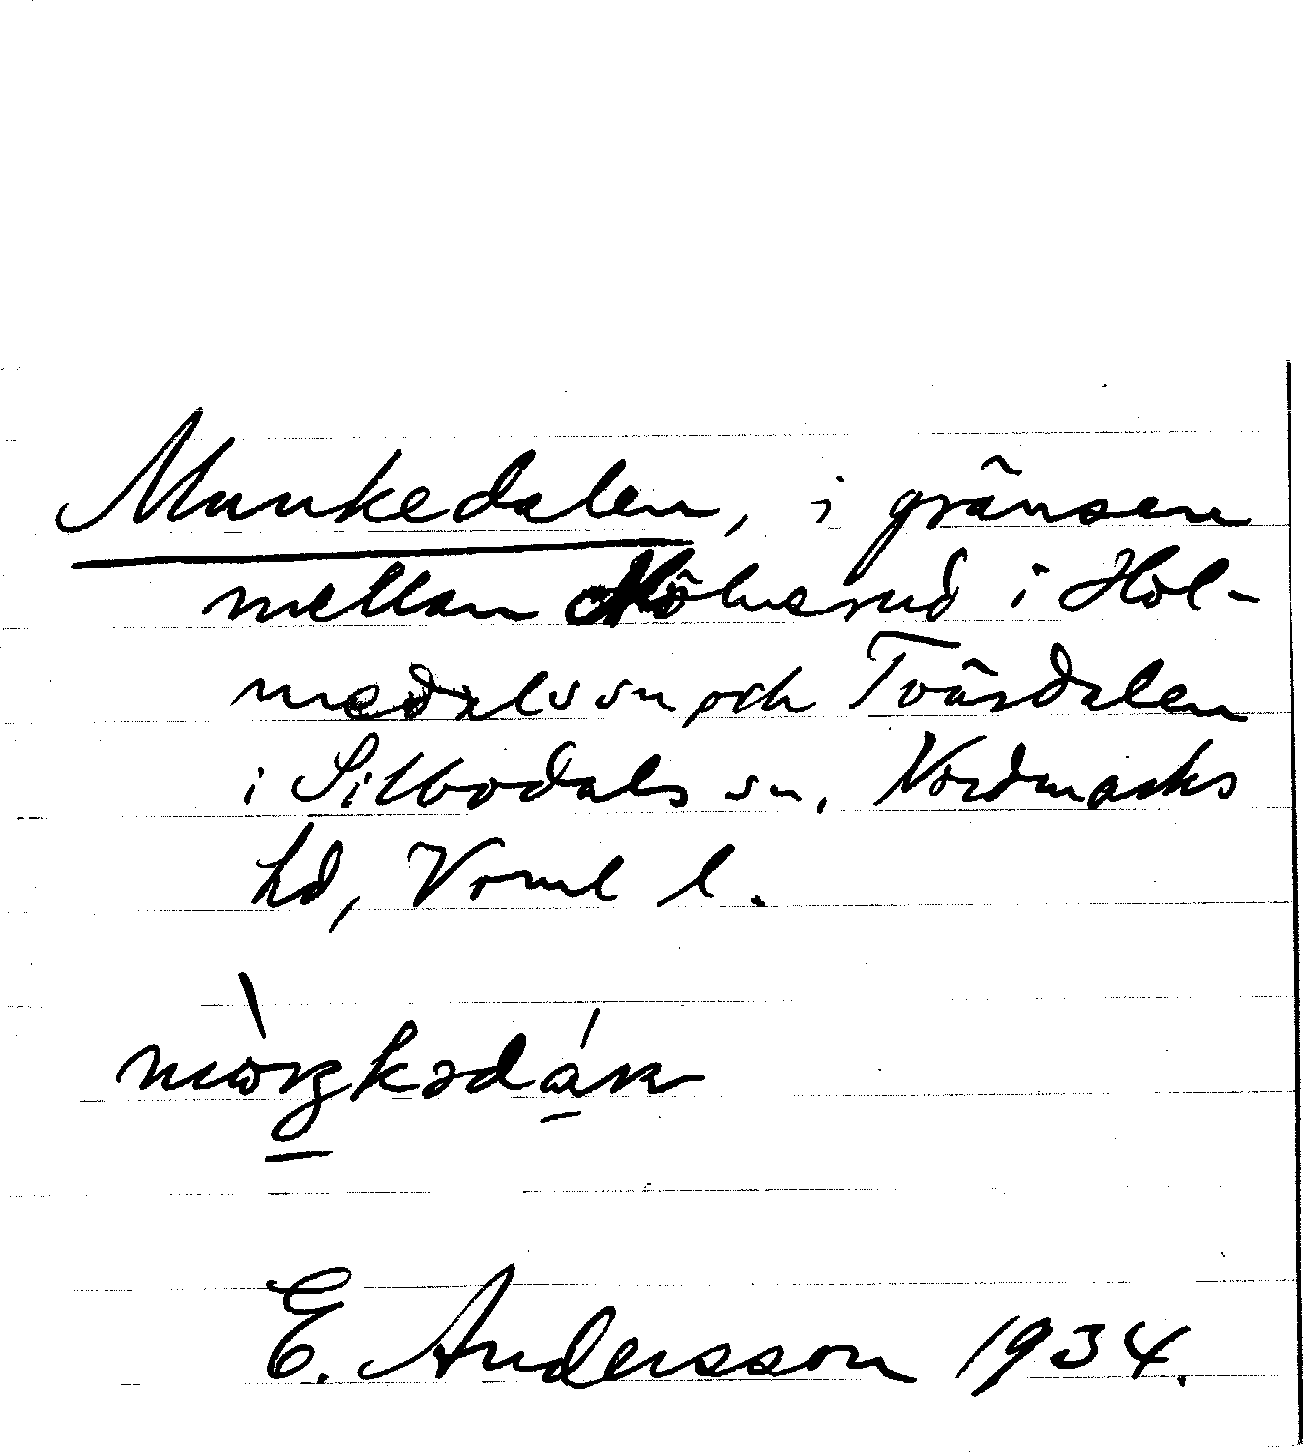 Munkedalen, i gränsen
mellan Mölnerud i Hol-
medals sn och Tvärdalen
i Silbodals sn, Nordmarks
hd, Vrml l.
E. Andersson 1934.